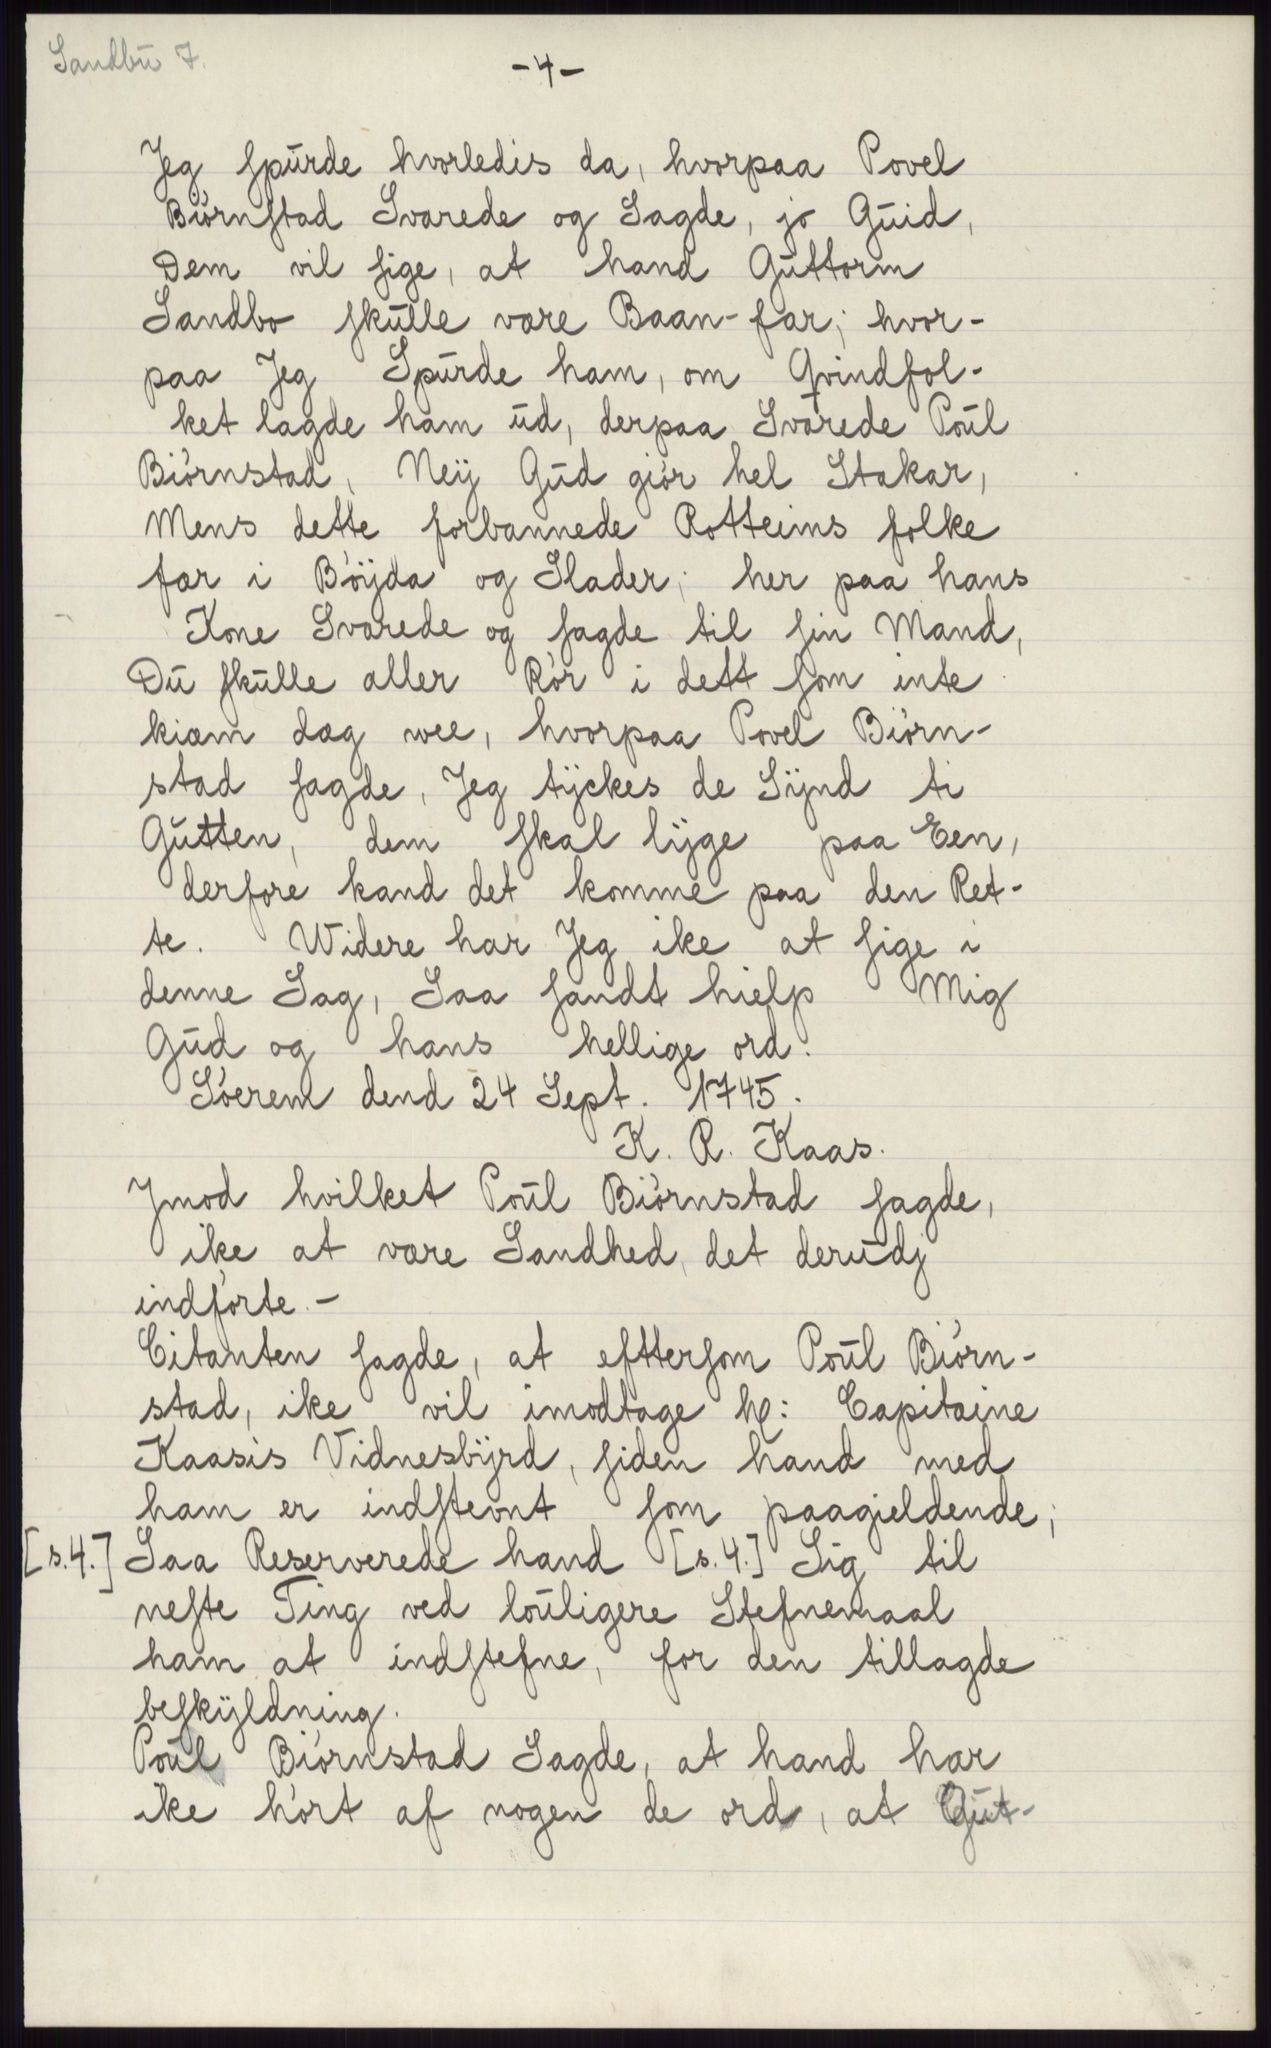 Sandbu 7.
-4-
Jeg spurde hvorledis da, hvorpaa Povel
Biørnstad Svarede og Sagde, jo Guid,
Dem vil sige, at hand Guttorm
Sandbo skulle være Baan-far; hvor-
paa Jeg Spurde ham, om Qvindfol-
ket lagde ham ud, derpaa Svarede Poul
Biørnstad, Neÿ Gud giør hel Stakar,
Mens dette forbannede Rotteims folke
far i Bøÿda og Slader; her paa hans
Kone Svarede og sagde til sin Mand,
Du skulle aller Rør i dett som inte
kiæm dæg wee, hvorpaa Povel Biørn-
stad sagde, Jeg tÿckes de Sÿnd ti
Gutten, dem skal lÿge paa Een,
derfore kand det komme paa den Ret-
te. Widere har Jeg ike at sige i
denne Sag, Saa sandt hielp Mig
Gud og hans hellige ord.
Søerem dend 24 Sept. 1745.
K. R. Kaas.
Jmod hvilket Poul Biørnstad sagde,
ike at være Sandhed, det derudj
indførte. -
Citanten sagde, at efttersom Poul Biørn-
stad, ike vil imodtage Hr: Capitaine
Kaasis Vidnesbÿrd, siden hand med
ham er indstevnt som paagieldende;
[s.4.] Saa Reserverede hand [s.4.] Sig til
neste Ting ved louligere Stefnemaal
ham at indstefne, for den tillagde
beskÿldning.
Poul Biørnstad Sagde, at hand har
ike hørt af nogen de ord, at Gut-